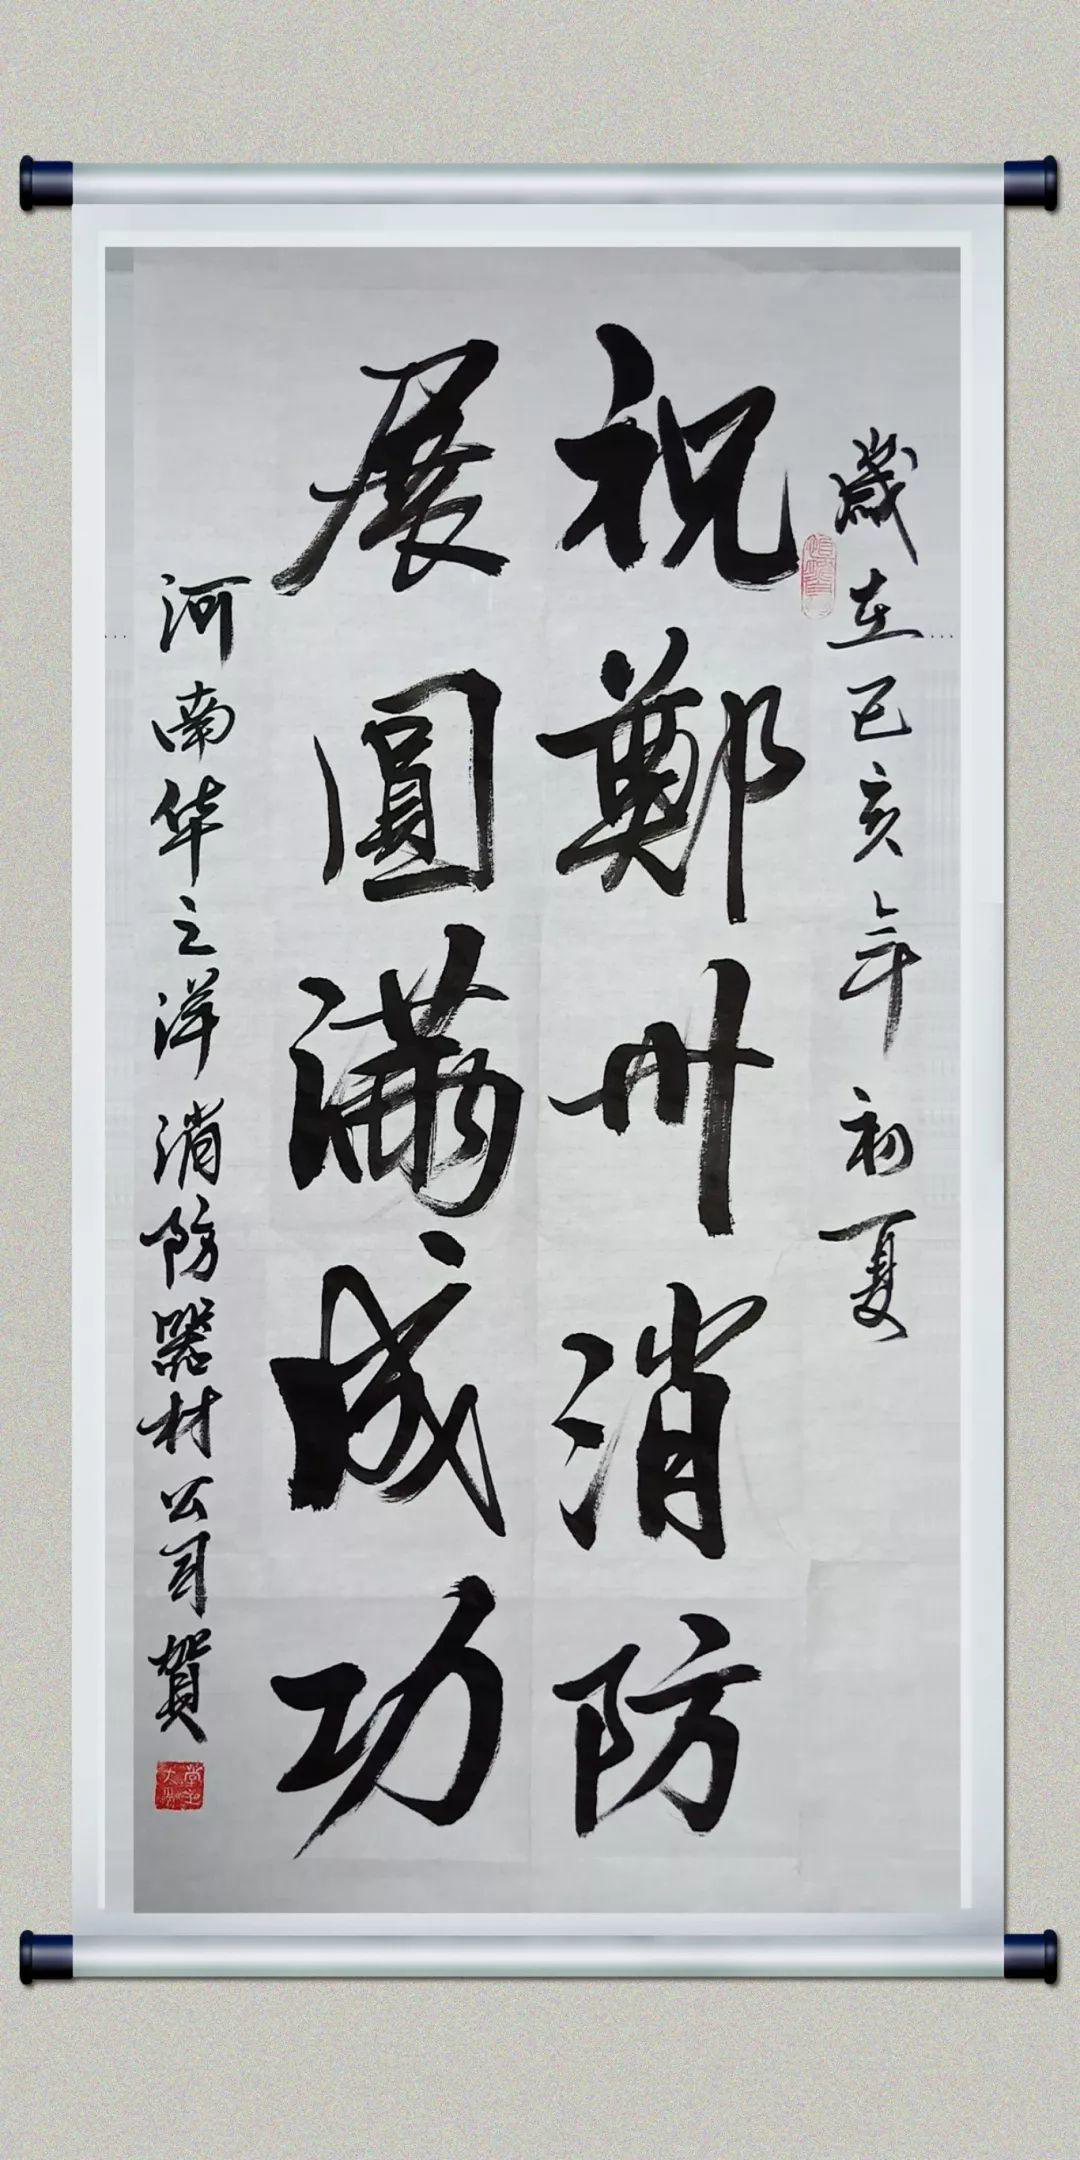 歲在己亥年初夏
祝鄭州消防
展圓满成功
河南华之洋消防器材公司賀